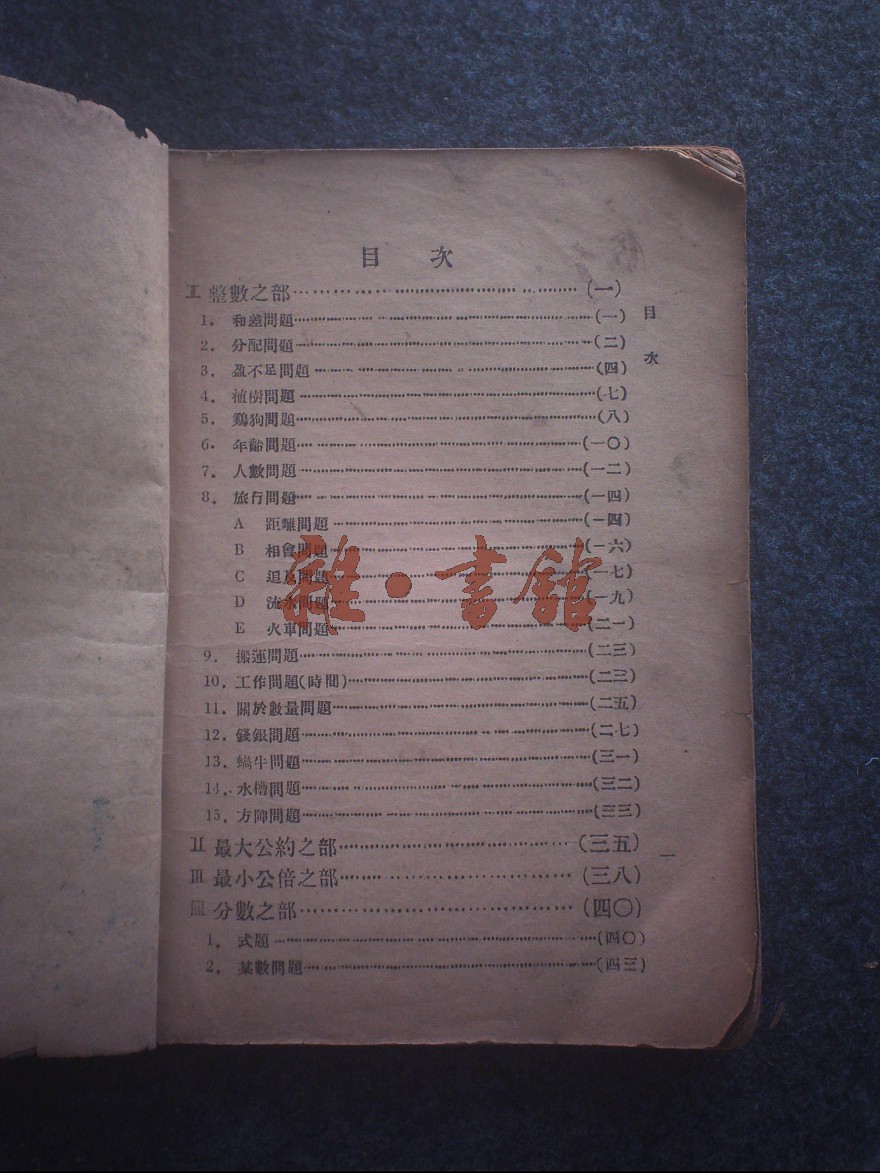 目 次
Ⅰ 整數之部……………………………(一)
1. 和差問題……………………………(一)
2. 分配問題……………………………(二)
3. 盈不足問題……………………………(四)
4. 植樹問題……………………………(七)
5. 鷄狗問題……………………………(八)
6. 年齡問題……………………………(一〇)
7. 人數問題……………………………(一二)
8. 旅行問題……………………………(一四)
A 距離問題……………………………(一四)
B 相會問題……………………………(一六)
C 追及問題……………………………(一七)
D 流水問題……………………………(一九)
E 火車問題……………………………(二一)
9. 搬運問題……………………………(二三)
10. 工作問題(時間)……………………………(二三)
11. 關於數量問題……………………………(二五)
12. 錢銀問題……………………………(二七)
13. 蝸牛問題……………………………(三一)
14. 水槽問題……………………………(三二)
15. 方陣問題……………………………(三三)
Ⅱ 最大公約之部……………………………(三五)
Ⅲ 最小公倍之部……………………………(三八)
分數之部……………………………(四〇)
1. 式題……………………………(四〇)
2. 某數問題……………………………(四三)
目次
一
雜·書館